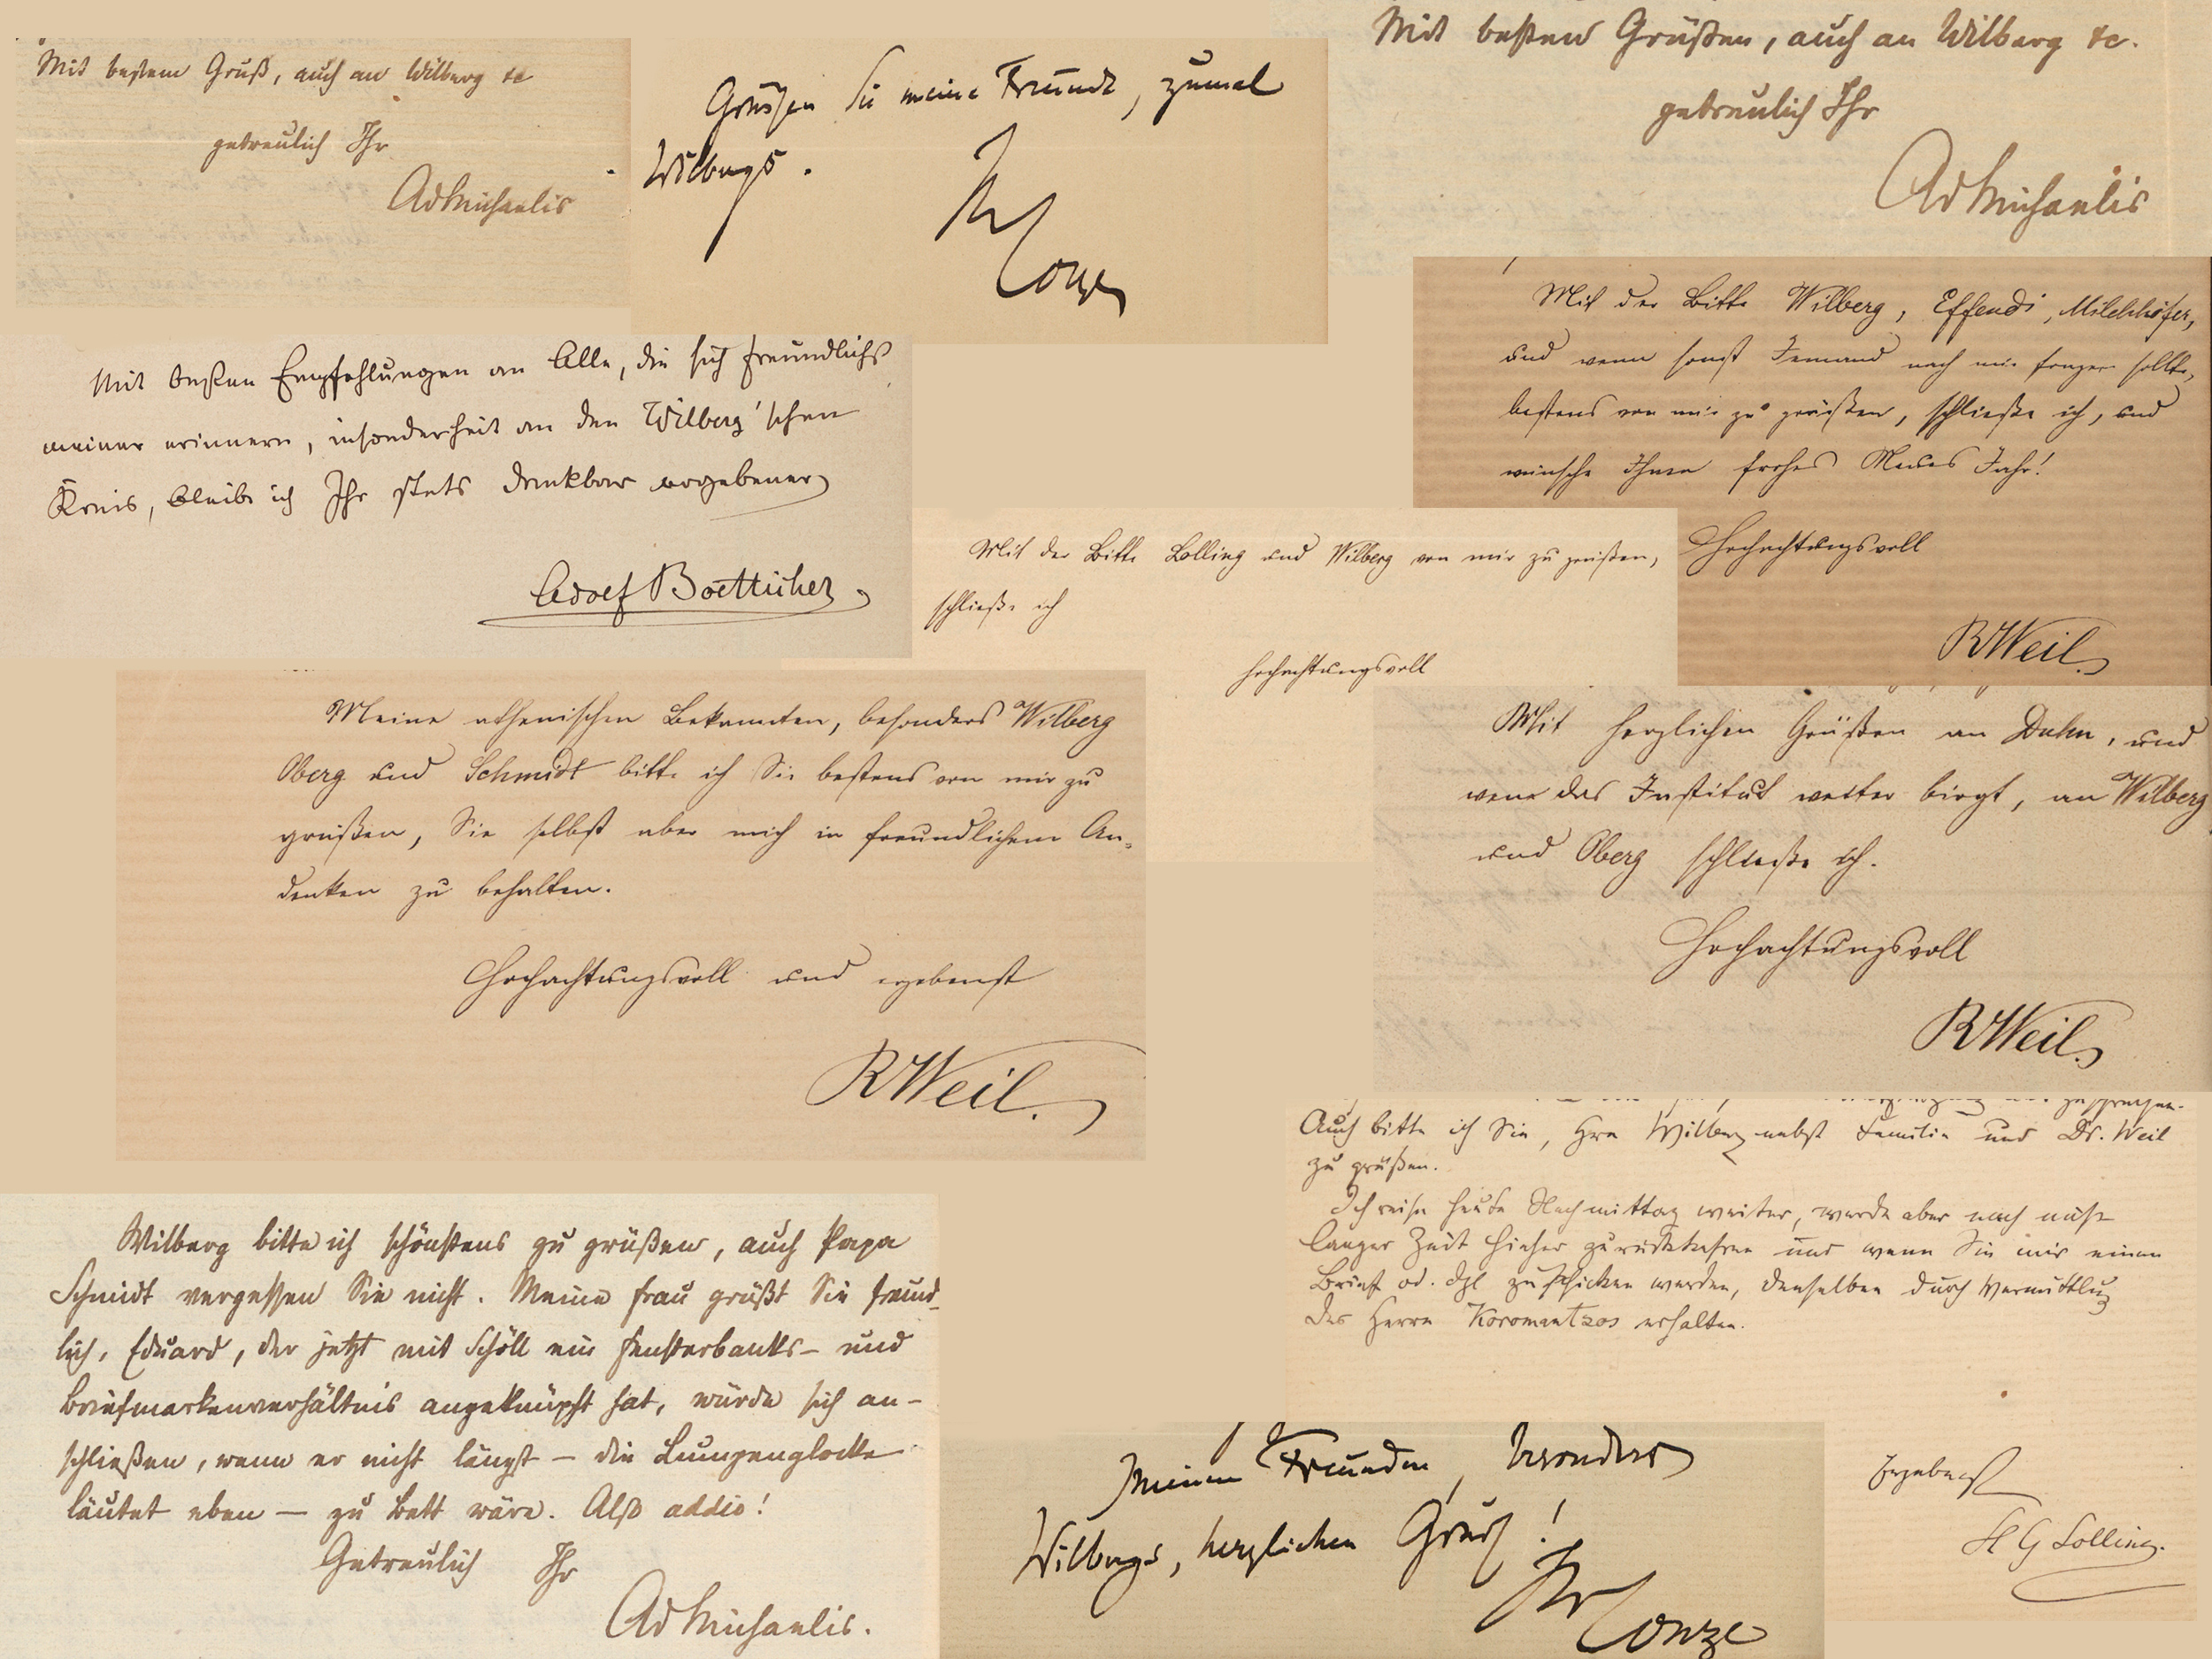 Mit bestem Gruß, auch an Wilberg etc
getreulich Ihr
AdMichaelis
Grüssen Sie meine Freunde, zumal
Wilbergs.
Ihr
Conze
Mit besten Grüßen, auch an Wilberg etc.
getreulich Ihr
AdMichaelis
Mit der Bitte Wilberg, Effendi, Milchhöfer,
und wenn sonst Jemand nach mir fragen sollte,
bestens von mir zu grüßen, schließe ich, und
wünsche Ihnen frohes Neues Jahr!
Hochachtungsvoll
RWeil.
Mit besten Empfehlungen an Alle, die sich freundlichst
meiner erinnern, insonderheit an den Wilberg'schen
Kreis, bleibe ich Ihr stets dankbar ergebener
Adolf Boetticher
Mit der Bitte Lolling und Wilberg von mir zu grüßen,
schließe ich
hochachtungsvoll
Meine athenischen Bekannten, besonders Wilberg
Oberg und Schmidt bitte ich Sie bestens von mir zu
grüßen, Sie selbst aber mich in freundlichem An-
denken zu behalten.
Hochachtungsvoll und ergebenst
RWeil.
Mit herzlichen Grüßen an Duhn, und
wen das Institut weiter birgt, an Wilberg
und Oberg schließe ich.
Hochachtungsvoll
RWeil.
Auch bitte ich Sie, Hrn Wilberg nebst Familie und Dr. Weil
zu grüßen.
Ich reise heute Nachmittag weiter, werde aber nach nicht
langer Zeit hieher zurückkehren und wenn Sie mir einen
Brief od. dgl zuschicken werden, denselben durch Vermittlung
des Herrn Koromantzos erhalten.
Ergebenst
H G Lolling.
Wilberg bitte ich schönstens zu grüßen, auch Papa
Schmidt vergessen Sie nicht. Meine Frau grüßt Sie freund-
lich, Eduard, der jetzt mit Schöll ein Fensterbanks- und
Briefmarkenverhältnis angeknüpft hat, würde sich an-
schließen, wenn er nicht längst – die Lumpenglocke
läutet eben – zu Bett wäre. Also addio!
Getreulich Ihr
AdMichaelis.
Meinen Freunden, besonders
Wilbergs, herzlichen Gruß!
Ihr
Conze